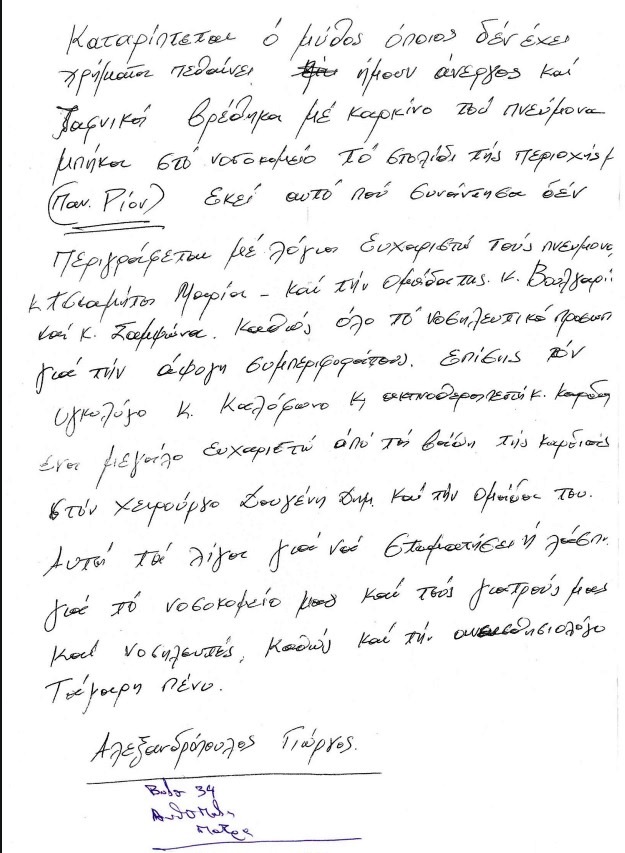 Καταρίπτεται ὁ μύθος ὁποιος δέν ἔχει
χρήματα πεθαίνει. ἤμουν ἄνεργος καί
Ξαφνικά βρέθηκα μέ καρκίνο τοῦ πνεύμονα
μπήκα στό νοσοκομείο τό στολίδι τής περιοχής μ
(Παν. Ρίον) Εκεί αυτό πού συνάντησα δέν
Περιγράφεται μέ λόγια Ευχαριστώ τούς πνευμονο
κ. Τσιαμήτα Μαρία - καί τήν Ομάδα της. κ. Βούλγαρη
καί κ. Σαμψώνα. Καθώς όλο τό νοσηλευτικό προσωπ
γιά τήν άψογη συμπεριφορά τους. Επίσης τόν
ογκολόγο κ. Καλόφωνο κ, ακτινοθεραπευτή κ. Καρδα
ένα μεγάλο ευχαριστώ από τά βάθη της καρδιάς
στόν χειρούργο Δουγένη Δημ. καί τήν ομάδα του.
Αυτά τά λίγα γιά νά σταματήσει ή λάσπη
γιά τό νοσοκομείο μας καί τούς γιατρούς μας
καί νοσηλευτές, καθώς καί τήν αναισθησιολόγο
Τσάμαρη Πένυ.
Αλεξανδρόπουλος Γιώργος.
34
Πάτρα